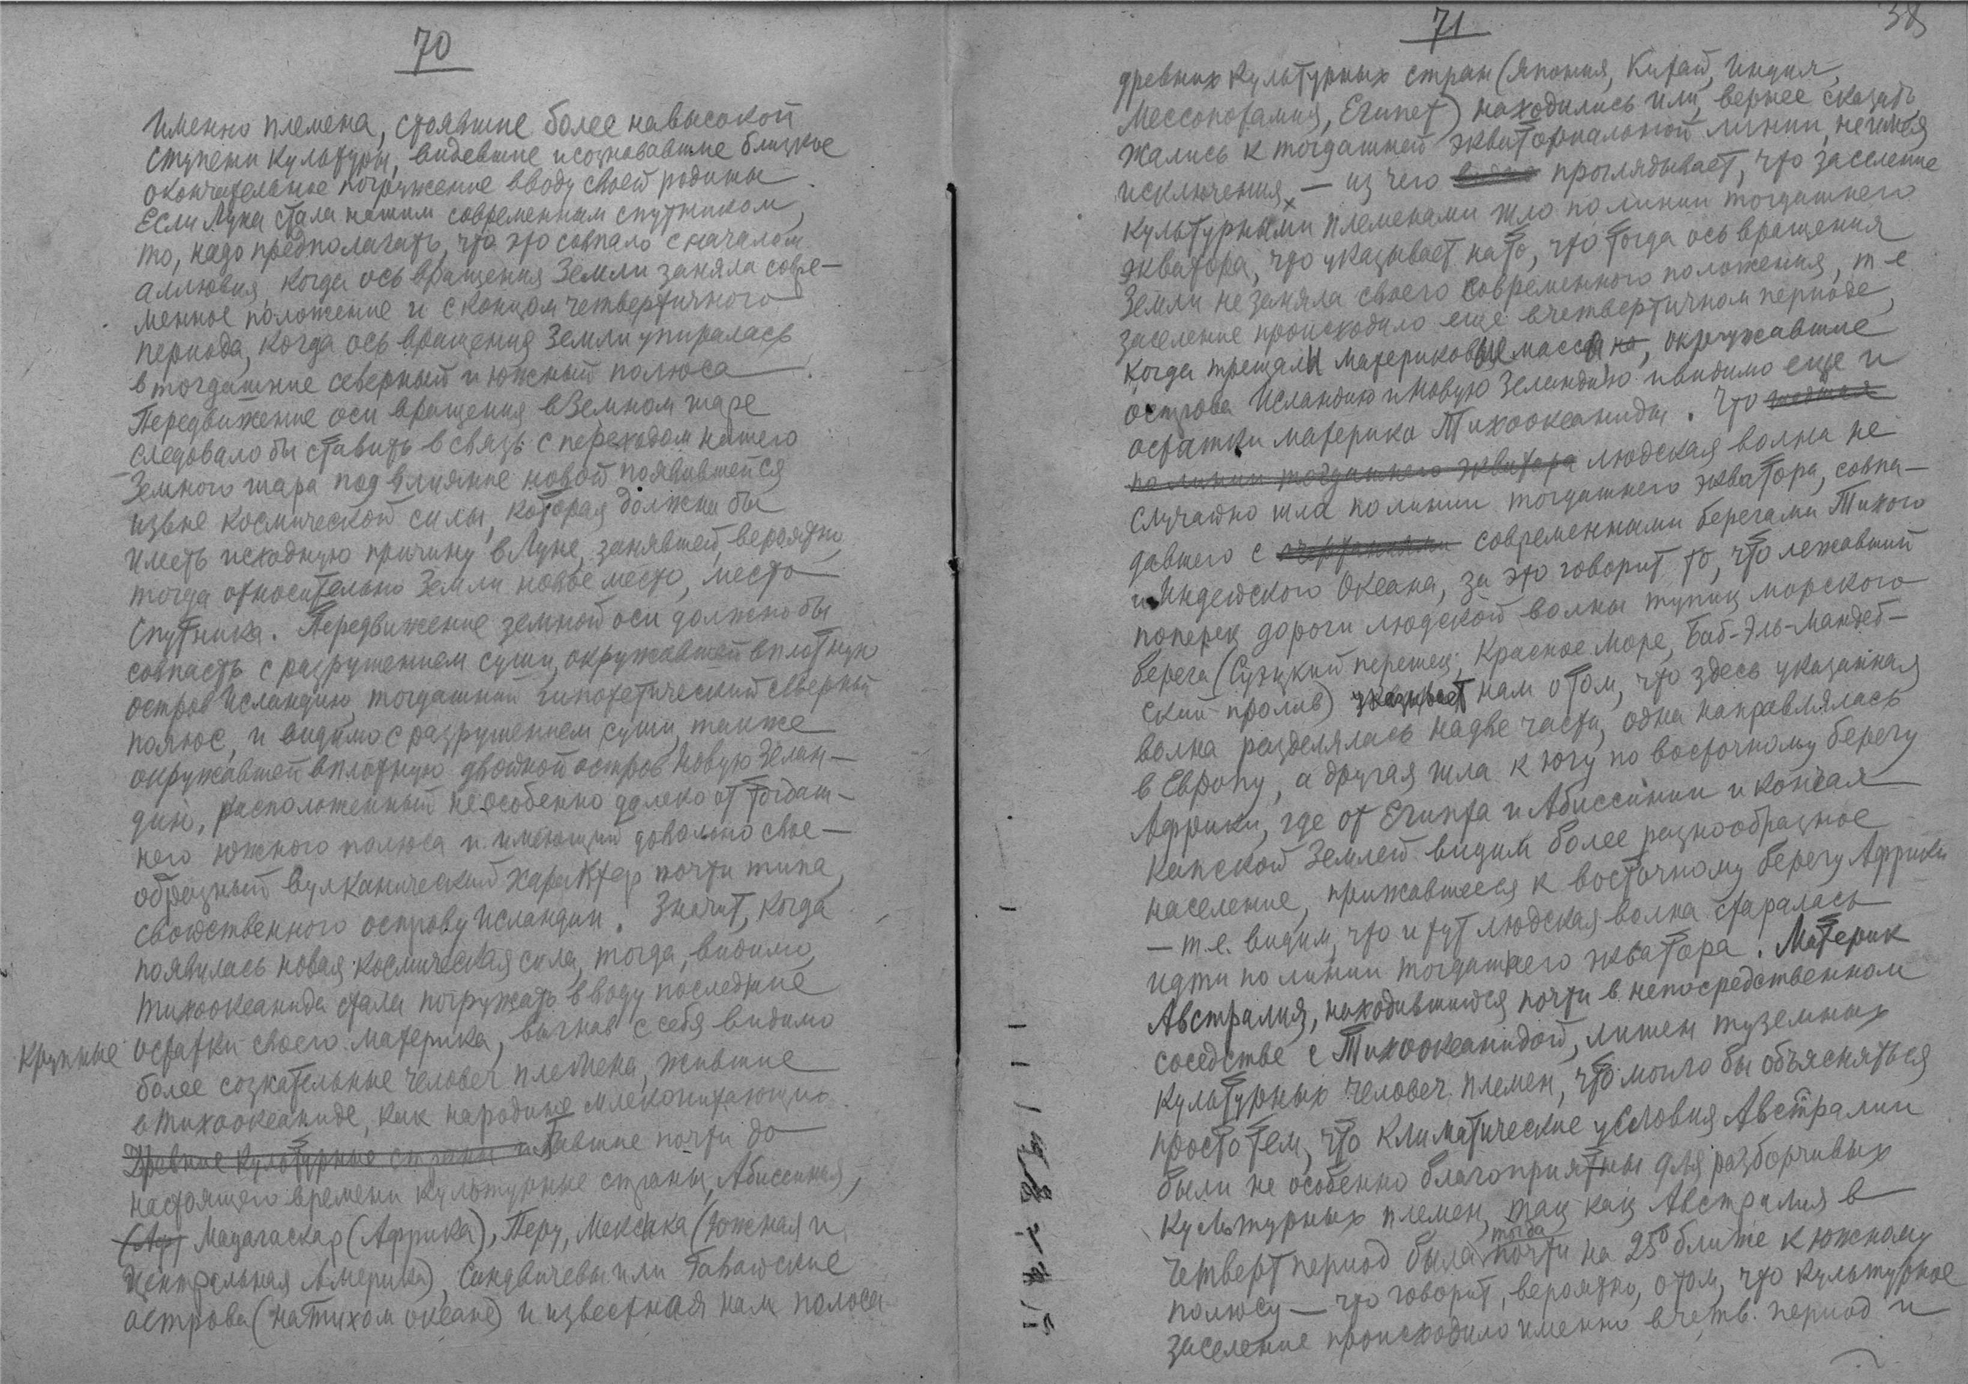 70
Именно племена, стоявшие более на высокой
ступени культуры, видевшие и сознававшие близкое
окончательное погружение в воду своей родины.
Если Луна стала нашим современным спутником,
то, надо предполагать, что это совпало с началом
аллювия, когда ось вращения Земли заняла совре-
менное положение и с концом четвертичного
периода, когда ось вращения Земли упиралась
в тогдашние северный и южный полюса.
Передвижение оси вращения в Земном шаре
следовало бы ставить в связь с переходом нашего
Земного шара под влияние новой появившейся
извне космической силы, которая должна бы
иметь исходную причину в Луне, занявшей, вероятно,
тогда относительно Земли новое место, место
Спутника. Передвижение земной оси должно бы
совпасть с разрушением суши, окружавшей вплотную
остров Исландию, тогдашний гипотетический северный
полюс, и видимо с разрушением суши, также
окружавшей вплотную двойной остров Новую Зелан-
дию, расположенный не особенно далеко от тогдаш-
него южного полюса и имеющий довольно свое-
образный вулканический характер почти типа,
свойственного острову Исландии. Значит, когда
появилась новая космическая сила, тогда, видимо,
Тихоокеанида стала погружать в воду последние
Крупные остатки своего материка, выгнав с себя видимо
более сознательные человеч племена, жившие
в Тихоокеаниде, как на родине млекопитающих.
Древние культурные страны ставшие почти до
настоящего времени культурные страны, Абиссиния,
(Аф) Мадагаскар (Африка), Перу, Мексика (южная и
Центральная Америка), Сандвичевы или Гавайские
острова (на Тихом океане) и известная нам полоса
71
древних культурных стран (Япония, Китай, Индия,
Мессопотамия, Египет) находились или, вернее сказать,
жались к тогдашней экваториальной линии, не имея
исключения, — из чего проглядывает, что заселение
культурными племенами шло по линии тогдашнего
экватора, что указывает на то, что тогда ось вращения
Земли не заняла своего современного положения, т е
заселение происходило еще в четвертичном периоде,
когда трещали материковые массы, окружавшие
острова Исландию и Новую Зеландию и видимо еще и
остатки материка Тихоокеаниды. Что
по линии тогдашнего экватора людская волна не
случайно шла по линии тогдашнего экватора, совпа-
давшего с современными берегами Тихого
и Индейского Океана, за это говорит то, что лежавший
поперек дороги людской волны тупик морского
берега (Суэцкий перешеек, Красное море, Баб-Эль-Мандеб-
ский пролив) указывает нам о том, что здесь указанная
волна разделялась на две части, одна направлялась
в Европу, а другая шла к югу по восточному берегу
Африки, где от Египта и Абиссинии и кончая
Капской Землей видим более разнообразное
население, прижавшееся к восточному берегу Африки
— т.е. видим, что и тут людская волна старалась
идти по линии тогдашнего экватора. Материк
Австралия, находившийся почти в непосредственном
соседстве с Тихоокеанидой, лишен туземных
культурных человеч. племен, что могло бы объясняться
просто тем, что климатические условия Австралии
были не особенно благоприятны для разборчивых
культурных племен, так как Австралия в
четверт период была тогда почти на 25° ближе к южному
полюсу — что говорит, вероятно, о том, что культурное
заселение происходило именно в четв. период и